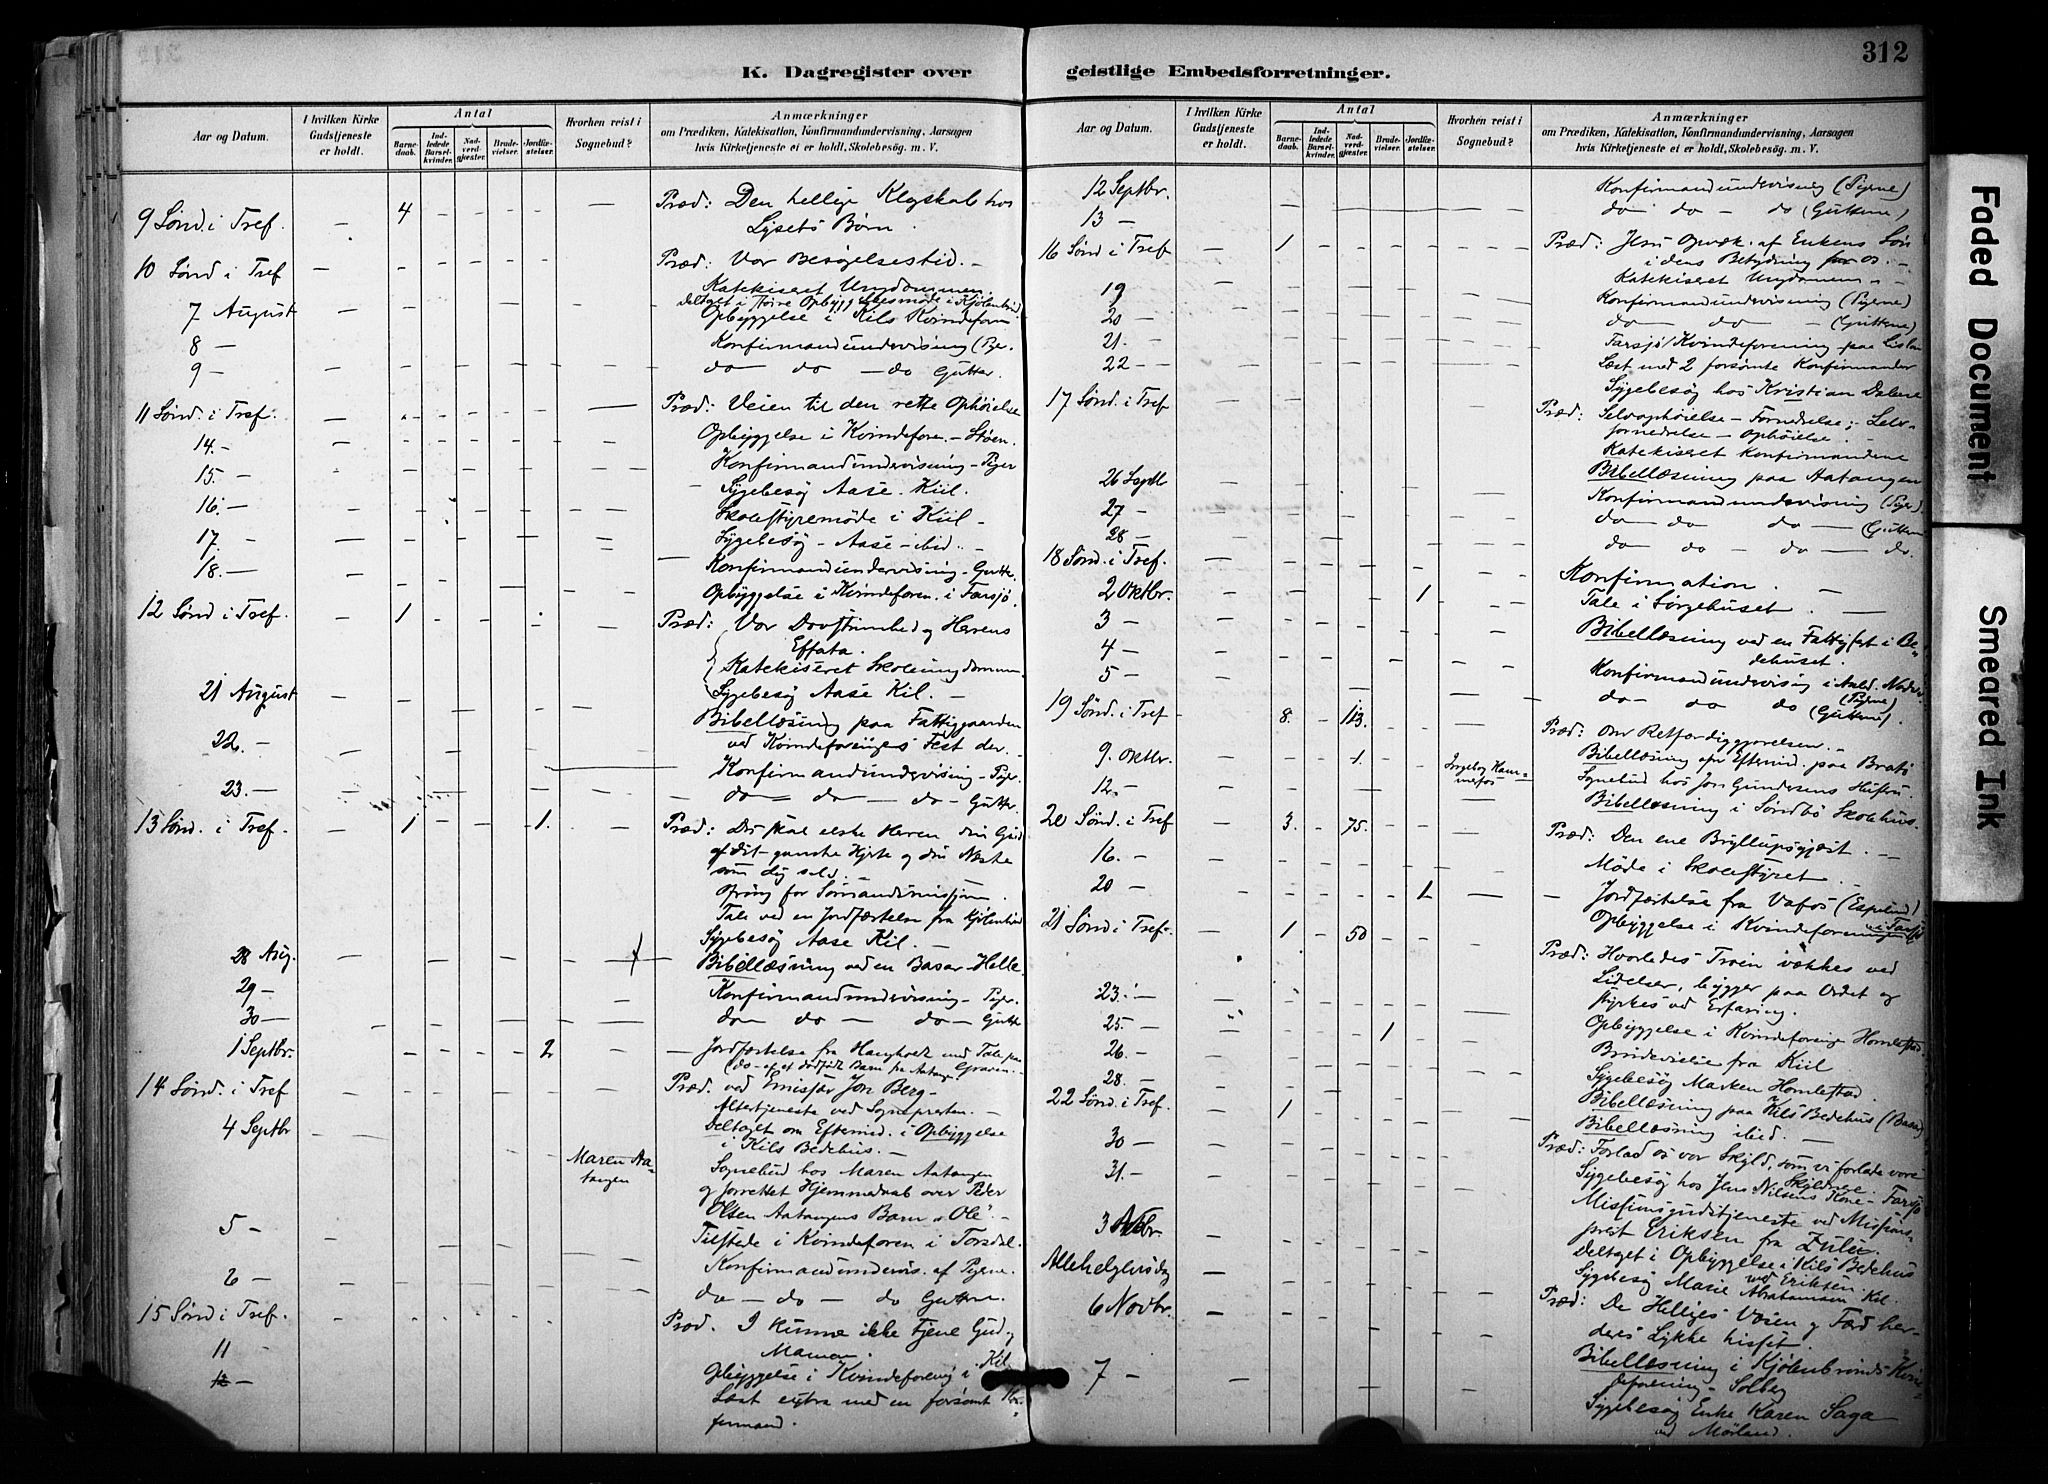 312
K. Dagregister over geistlige Embedsforretninger.
Aar og Datum.
I hvilken Kirke Gudstjeneste er holdt.
Antal
Barnedaab.
Indledede Barselkvinder.
Nadverdgjester.
Brudevielser.
Jordfæstelser.
Hvorhen reist i Sognebud?
Anmærkninger
om Prædiken, Katekisation, Konfirmandundervisning, Aarsagen
hvis Kirketjeneste ei er holdt, Skolebesøg. m. V.
9 Sønd. i Tref. – 4 – – – – – Præd: Den hellige Klogskab hos
Lysets Børn.
10 Sønd i Tref – Præd: Vor Besøgelsestid. –
Katekiseret Ungdommen.
Deltaget i større Opbyggelsesmøde i Kjølebrønd
7 August – Opbyggelse i Kils Kvindeforen
8 – Konfirmandundervisning (Pi.
9 – do do – do Gutter.
11 Sønd. i Tref. – Præd: Veien til den rette Ophøielse
14. – Opbyggelse i Kvindeforen. – Støen.
15. – Konfirmandundervisning – Piger
16. – Sygebesøg Aase. Kiil.
Skolestyremøde i Kiil –
17. – Sygebesøg – Aase – ibid. –
18. – Konfirmandundervisning – Gutter.
Opbyggelse i Kvindeforen. i Farsjø.
12 Sønd i Tref. – 1 – Præd: Vor Døvstumhed og Herrens
Effata.
Katekiseret Skoleungdommen
21 August – Sygebesøg Aase Kil. –
Bibellæsning paa Fattiggaarden
22. – ved Kvindeforeniges Fest der. –
Konfirmandundervisning – Piger.
23. – do – do – do – Gutter.
13 Sønd. i Tref. – 1 – 1. – Præd: Du skal elske Herren din Gud
af dit ganske Hjerte og din Næste
som dig selv. –
Ofring for Sømandsmissjon.
Tale ved en Jordfæstelse fra Kjølebrønd
Sygebesøg Aase Kil. –
28 Aug. – Bibellæsning ved en Basar – Helle.
29 – Konfirmandundervisning – Piger.
30 – do – do – do – Gutter
1 Septbr. – 2 – Jordfæstelse fra Haugholt med Tale paa
Graven. –
(do – af et dødfødt Barn fra Aatangen
14 Sønd. i Tref – Præd. ved Emissær Jon Berg –
Altertjeneste ved Sognepresten. –
4 Septbr – Deltaget om Eftermid. i Opbyggelse
i Kils Bedehus. –
Maren Aatangen
Sognebud hos Maren Aatangen
og forrettet Hjemmedaab over Peder
Olsen Aatangens Barn „Ole". –
5 – Tilstede i Kvindeforen i Torsdal.
Konfirmandundervis. af Pigerne.
6 – do – do – do Guttene.
15 Sønd i Tref. – Præd. I kunne ikke tjene Gud og
Mamon.
11 – Opbyggelse i Kvindeforening i Kil
12 – Læst extra med en forsømt Konfirmand.
12 Septbr. – Konfirmandundervisning (Pigerne)
13 – do do – do (Guttene)
16 Sønd i Tref – 1 – Præd: Jesu Opvæk. af Enkens Søn
i dens Betydning for os. –
Katekiseret Ungdommen –
19 – Konfirmandundervisning (Pigerne)
20 – do – do – (Guttene)
21. – Farsjø Kvindeforening paa
22 – Læst med 2 forsømte Konfirmander
Sygebesøg hos Kristian Dalene
17 Sønd. i Tref – Præd: Selvophøielse – Fornedrelse; – Selv-
fornedrelse – Ophøielse.
Katekiseret Konfirmanderne
26 Septb – Bibellæsning paa Aatangen
27 – Konfirmandundervisning (Piger)
28 – do do do – (Guttene
do – do – do – do.
18 Sønd. i Tref. – Konfirmation.
2 Oktbr. – 1 – Tale i Sørgehuset. –
3 – Bibellæsning ved en Fattigfest i Be-
dehuset.
4 – Konfirmandundervisning i
(Pigerne)
5 – do – do do (Guttene).
19 Sønd. i Tref – 8. – 113. – Præd: Om Retfærdiggjørelsen. –
9. Oktbr. – Bibellæsning om Eftermid. paa Bratø
– 1. Ingeborg Hammefos
Sognebud hos Jon Gundersens Hustru
12. – Bibellæsning i Søndbø Skolehus.
20 Sønd. i Tref – 3. – 75. – Præd: Den ene Bryllupsgjæst. –
16. – Møde i Skolestyret. –
20 – 1 – Jordfæstelse fra Vafos (Espelund)
Opbyggelse i Kvindeforeningen i Farsjø
21 Sønd i Tref. – 1 – 50 – Præd: Hvorledes Troen vækkes ved
Lidelser, bygger paa Ordet og
styrkes ved Erfaring.
23. – Opbyggelse i Kvindeforenige Homlestad.
25. – 1 – Brudevielse fra Kiil
26. – Sygebesøg Marken Homlestad.
28. – Bibellæsning paa Kils Bedehus (Basar)
Bibellæsning ibid. –
22 Sønd. i Tref. – 1 – Præd: Forlad os vor Skyld, som vi forlade vore
Skyldnere.
30 – Sygebesøg hos Jens Nilsens Kone – Farsjø
31 – Missionsgudstjeneste ved Missions-
prest Eriksen fra Zulu.
3 Novbr. – Deltaget i Opbyggelse i Kils Bedehus
ved Eriksen.
Sygebesøg Marie Abrahamsen Kil.
Allehelgensdag – Præd: De Helliges Veien og Færd her-
deres Lykke hisset.
6 Novbr. – Bibellæsning i Kjølebrønds Kvin-
deforening – Solberg
7 – Sygebesøg Enke Karen Saga
ved Mørland.
Faded Document
Smeared Ink